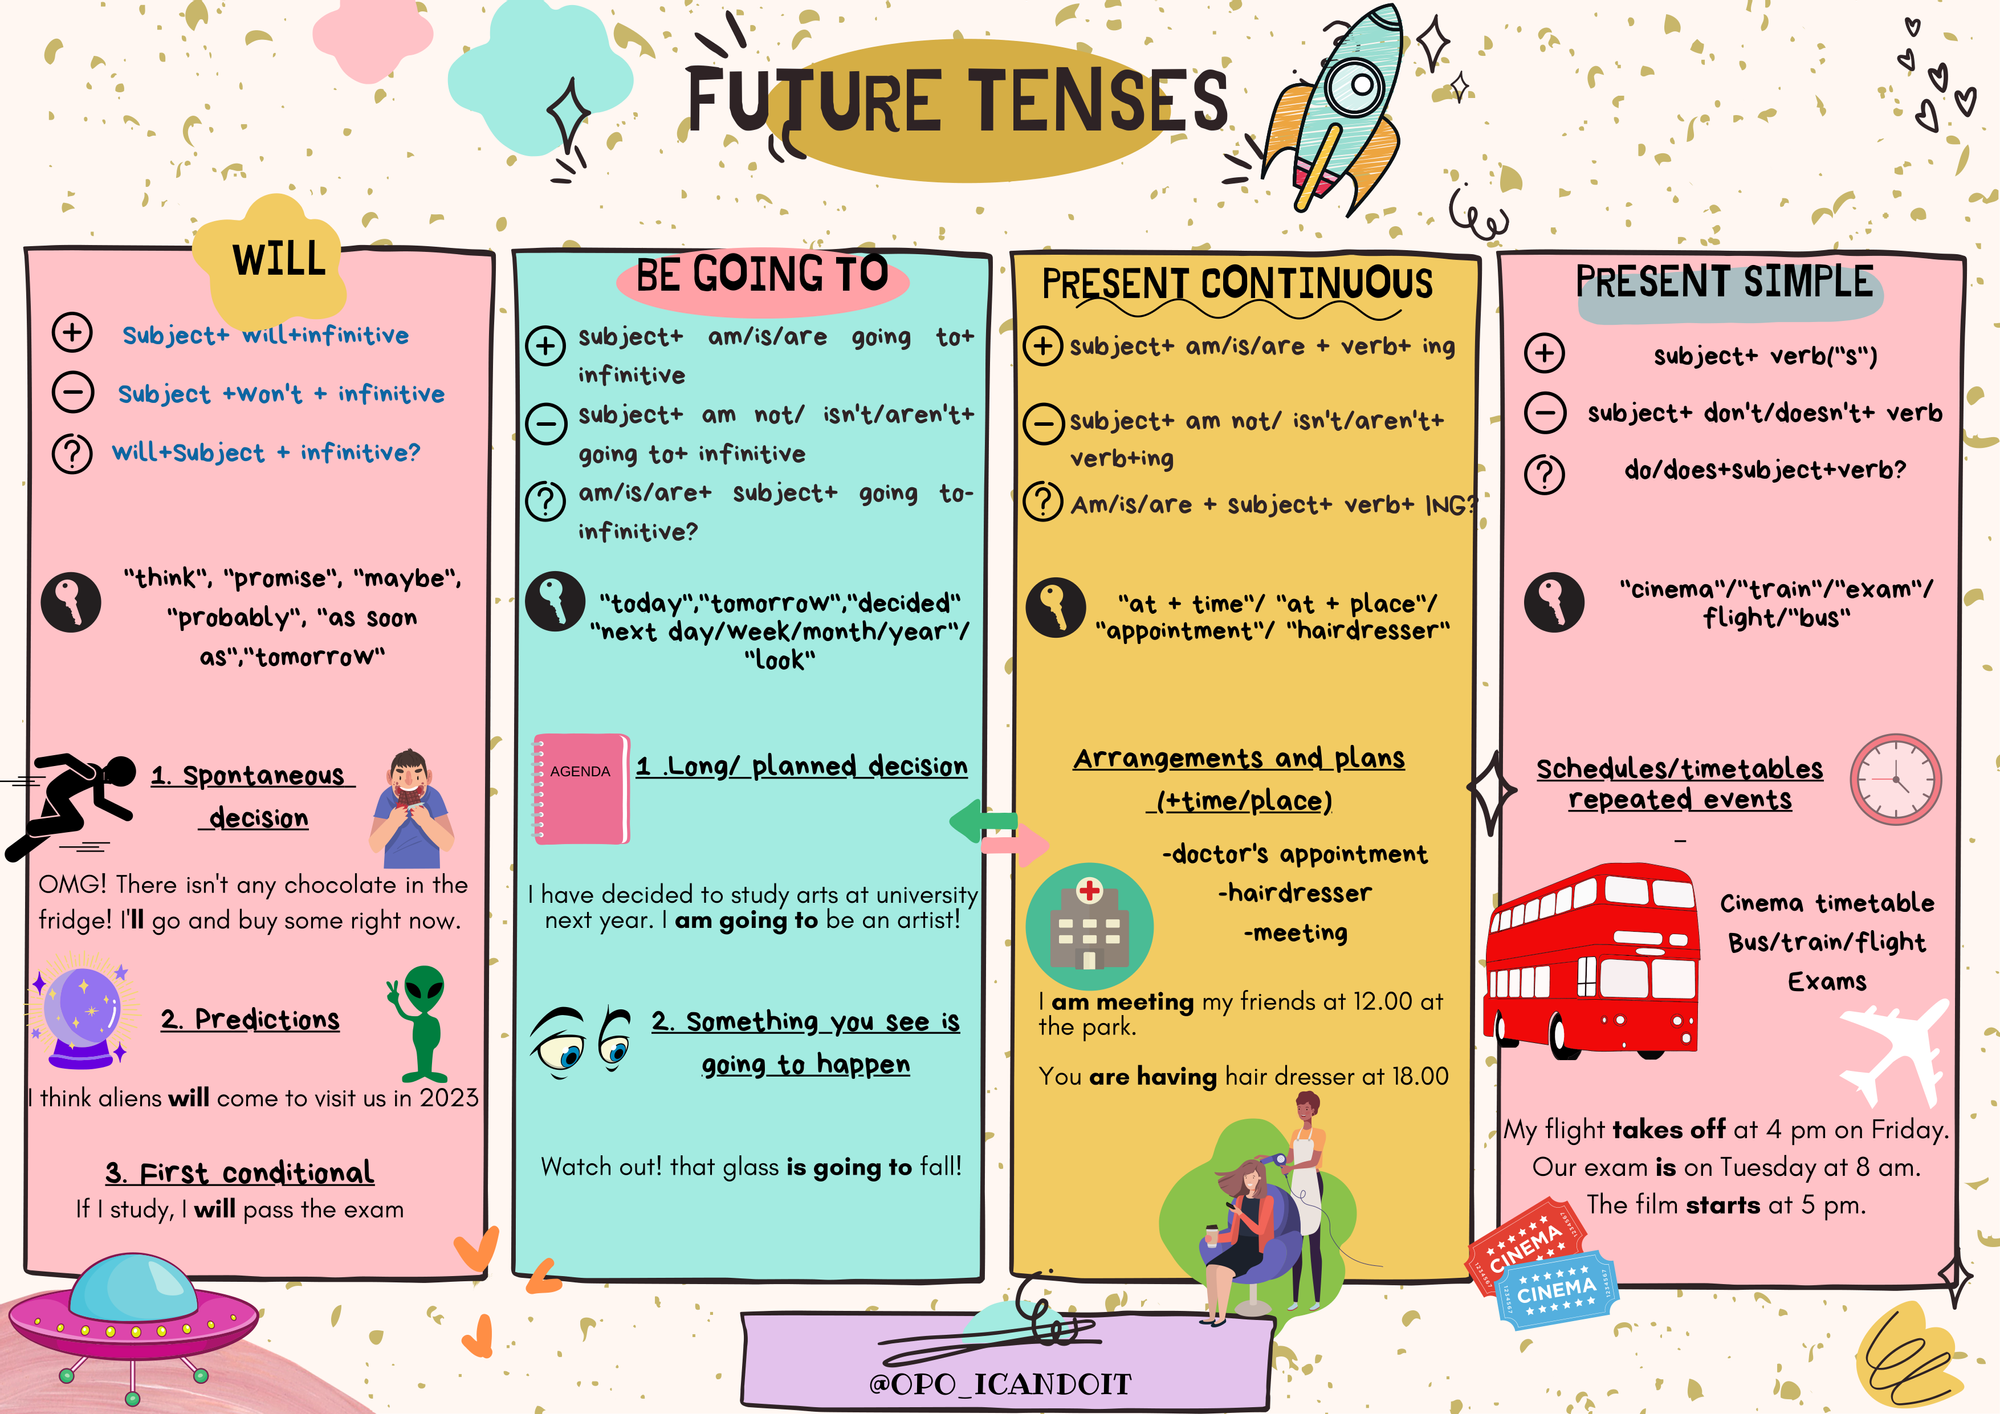 FUTURE TENSES
WILL
Subject+ will+infinitive
Subject +won't + infinitive
will+Subject + infinitive?
"think", "promise", "maybe",
"probably", "as soon
as","tomorrow"
1. Spontaneous
decision
OMG! There isn't any chocolate in the
fridge! I'll go and buy some right now.
2. Predictions
I think aliens will come to visit us in 2023
3. First conditional
If I study, I will pass the exam
BE GOING TO
subject+ am/is/are going to+
infinitive
subject+ am not/ isn't/aren't+
going to+ infinitive
am/is/are+ subject+ going to-
infinitive?
"today","tomorrow","decided"
"next day/week/month/year"/
"look"
AGENDA
1 .Long/ planned decision
I have decided to study arts at university
next year. I am going to be an artist!
2. Something you see is
going to happen
Watch out! that glass is going to fall!
PRESENT CONTINUOUS
subject+ am/is/are + verb+ ing
subject+ am not/ isn't/aren't+
verb+ing
Am/is/are + subject+ verb+ ING?
"at + time"/ "at + place"/
"appointment"/ "hairdresser"
Arrangements and plans
(+time/place)
-doctor's appointment
-hairdresser
-meeting
I am meeting my friends at 12.00 at
the park.
You are having hair dresser at 18.00
PRESENT SIMPLE
subject+ verb("s")
subject+ don't/doesn't+ verb
do/does+subject+verb?
"cinema"/"train"/"exam"/
flight/"bus"
Schedules/timetables
repeated events
-
Cinema timetable
Bus/train/flight
Exams
My flight takes off at 4 pm on Friday.
Our exam is on Tuesday at 8 am.
The film starts at 5 pm.
CINEMA
1234567
1234567
CINEMA
1234567
1234567
@OPO_ICANDOIT